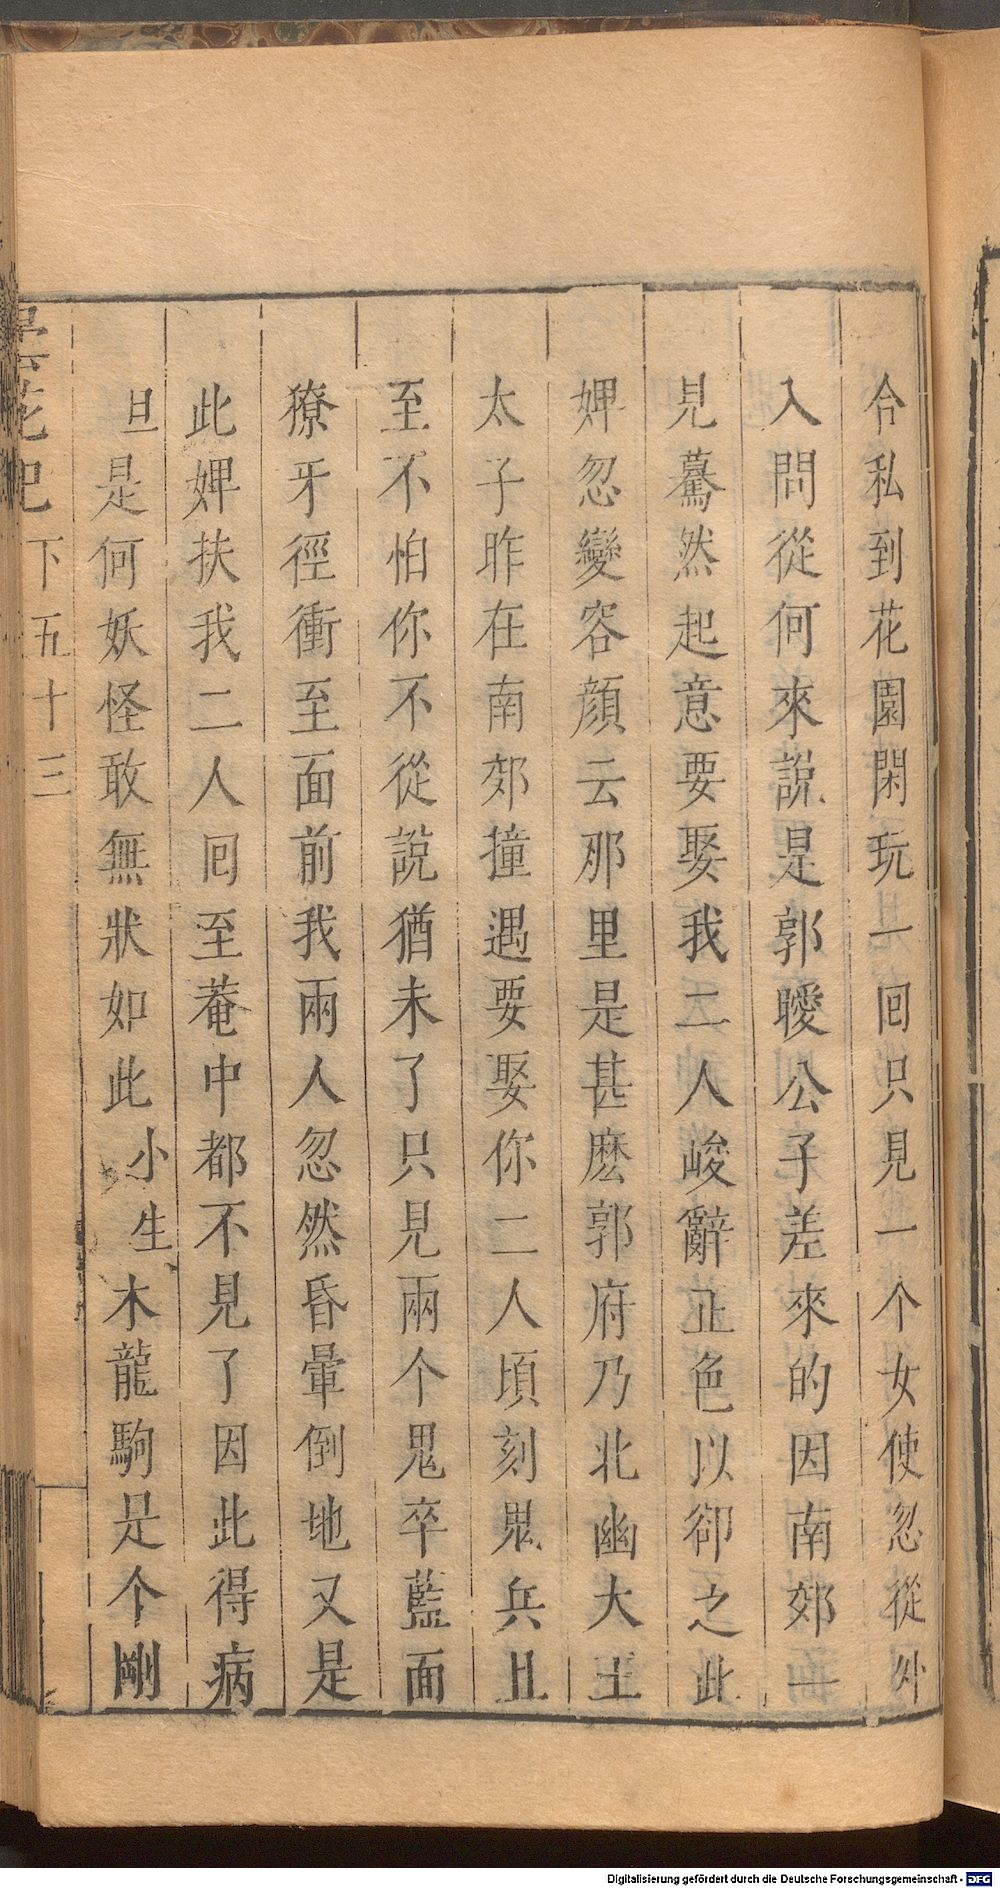 合私到花園閑玩一回只見一个女使忽從外
入問從何來說是郭曖公子差來的因南郊一
見驀然起意要娶我二人峻辭正色以卻之此
婢忽變容顏云那里是甚麽郭府乃北幽大王
太子昨在南郊撞遇要娶你二人頃刻鬼兵且
至不怕你不從說猶未了只見兩个鬼卒藍面
獠牙徑衝至面前我兩人忽然昏暈倒地又是
此婢扶我二人回至菴中都不見了因此得病
旦是何妖怪敢無狀如此小生木龍駒是个剛
曇花記 下 五十三
Digitalisierung gefördert durch die Deutsche Forschungsgemeinschaft - DFG